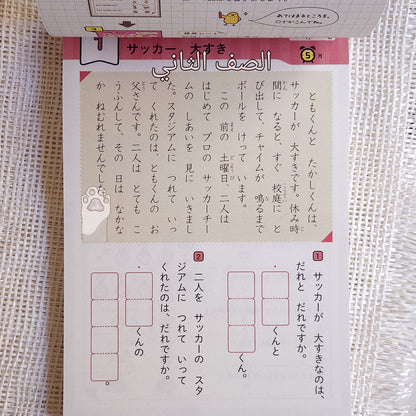 サッカー 大すき
الصف الثاني
5
ともくんと たかしくんは、
サッカーが 大すきです。休み時
間に なると、すぐ 校庭に と
び出して、チャイムが 鳴るまで
ボールを けって います。
この 前の 土曜日、二人は
はじめて プロの サッカーチー
ムの しあいを 見に いきまし
た。スタジアムに つれて いっ
てくれたのは、ともくんの お
父さんです。二人は とても こ
うふんして、その 日は なかな
か ねむれませんでした。
1 サッカーが 大すきなのは、
だれと だれですか。
くんと
くん。
2 二人を サッカーの スタ
ジアムに つれて いって
くれたのは、だれですか。
くんの
。